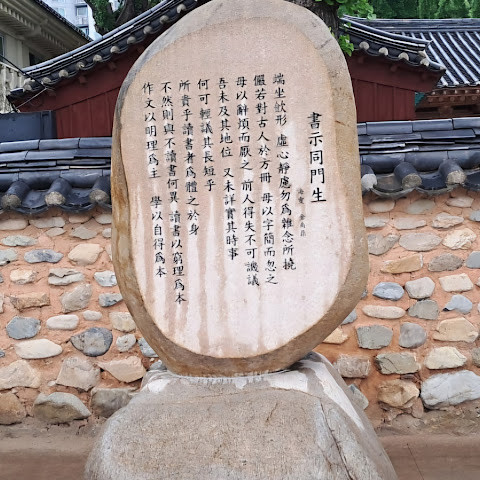 書示同門生
端坐歛形 虛心靜慮勿爲雜念所撓
儼若對古人於方冊 毋以字簡而忽之
毋以辭煩而厭之 前人得失不可譏議
吾未及其地位 又未詳實其時事
何可輕議其長短乎
所貴乎讀書者爲體之於身
不然則與不讀書何異 讀書以窮理爲本
作文以明理爲主 學以自得爲本